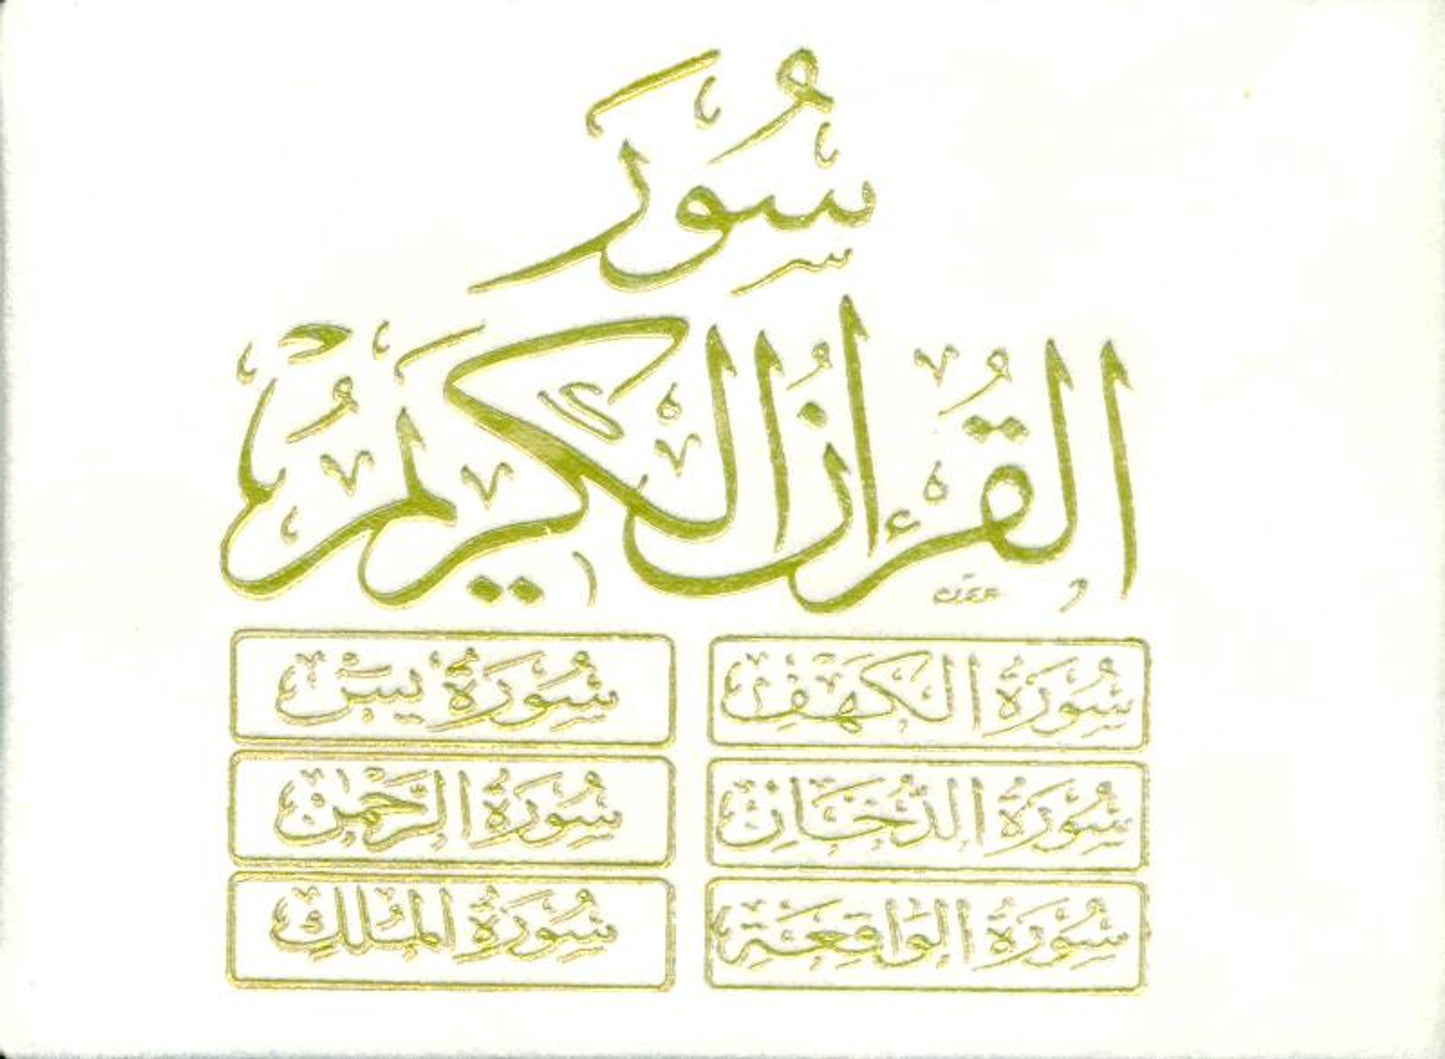 سُوَر
القُرْءانُ الكَرِيمُ
سُورَةُ الكَهَفِ
سُورَةُ يسن
سُورَةُ الدُّخَانِ
سُورَةُ الرَّحْمٰن
سُورَةُ الوَاقِعَةِ
سُورَةُ المُلكِ